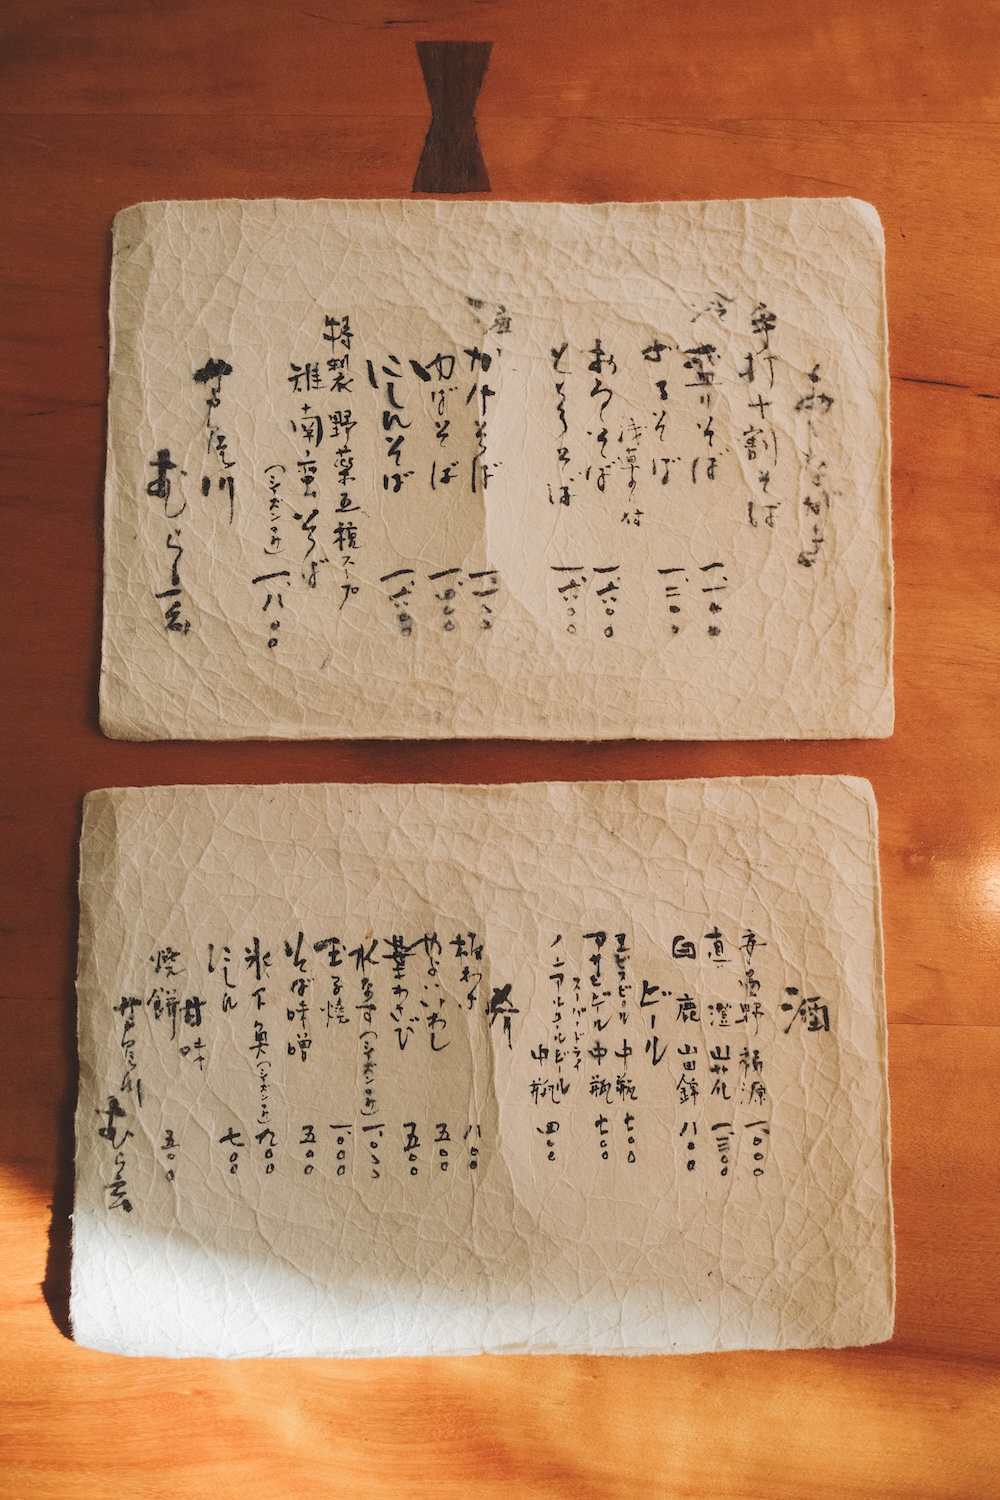 おしながき
手打十割そば
冷
盛りそば 一、一〇〇
ざるそば 一、二〇〇
おろしそば 一、六〇〇
とろろそば 一、六〇〇
温
かけそば
ゆばそば
にしんそば 一、六〇〇
特製 野菜五種スープ
雉南蛮そば
(シーズンのみ) 一、八〇〇
芦屋川
むら玄
酒
安曇野 福源 一、〇〇〇
真澄 山花 一、三〇〇
白鹿 山田錦 八〇〇
ビール
エビスビール 中瓶 七〇〇
アサヒビール 中瓶 七〇〇
スーパードライ
ノンアルコールビール 中瓶 四〇〇
肴
板わさ 八〇〇
やよいいわし 五〇〇
葉わさび 五〇〇
水なす(シーズンのみ) 一、〇〇〇
玉子焼 一、〇〇〇
そば味噌 五〇〇
氷下魚(シーズンのみ) 九〇〇
にしん 七〇〇
甘味
焼餅 五〇〇
芦屋川
むら玄